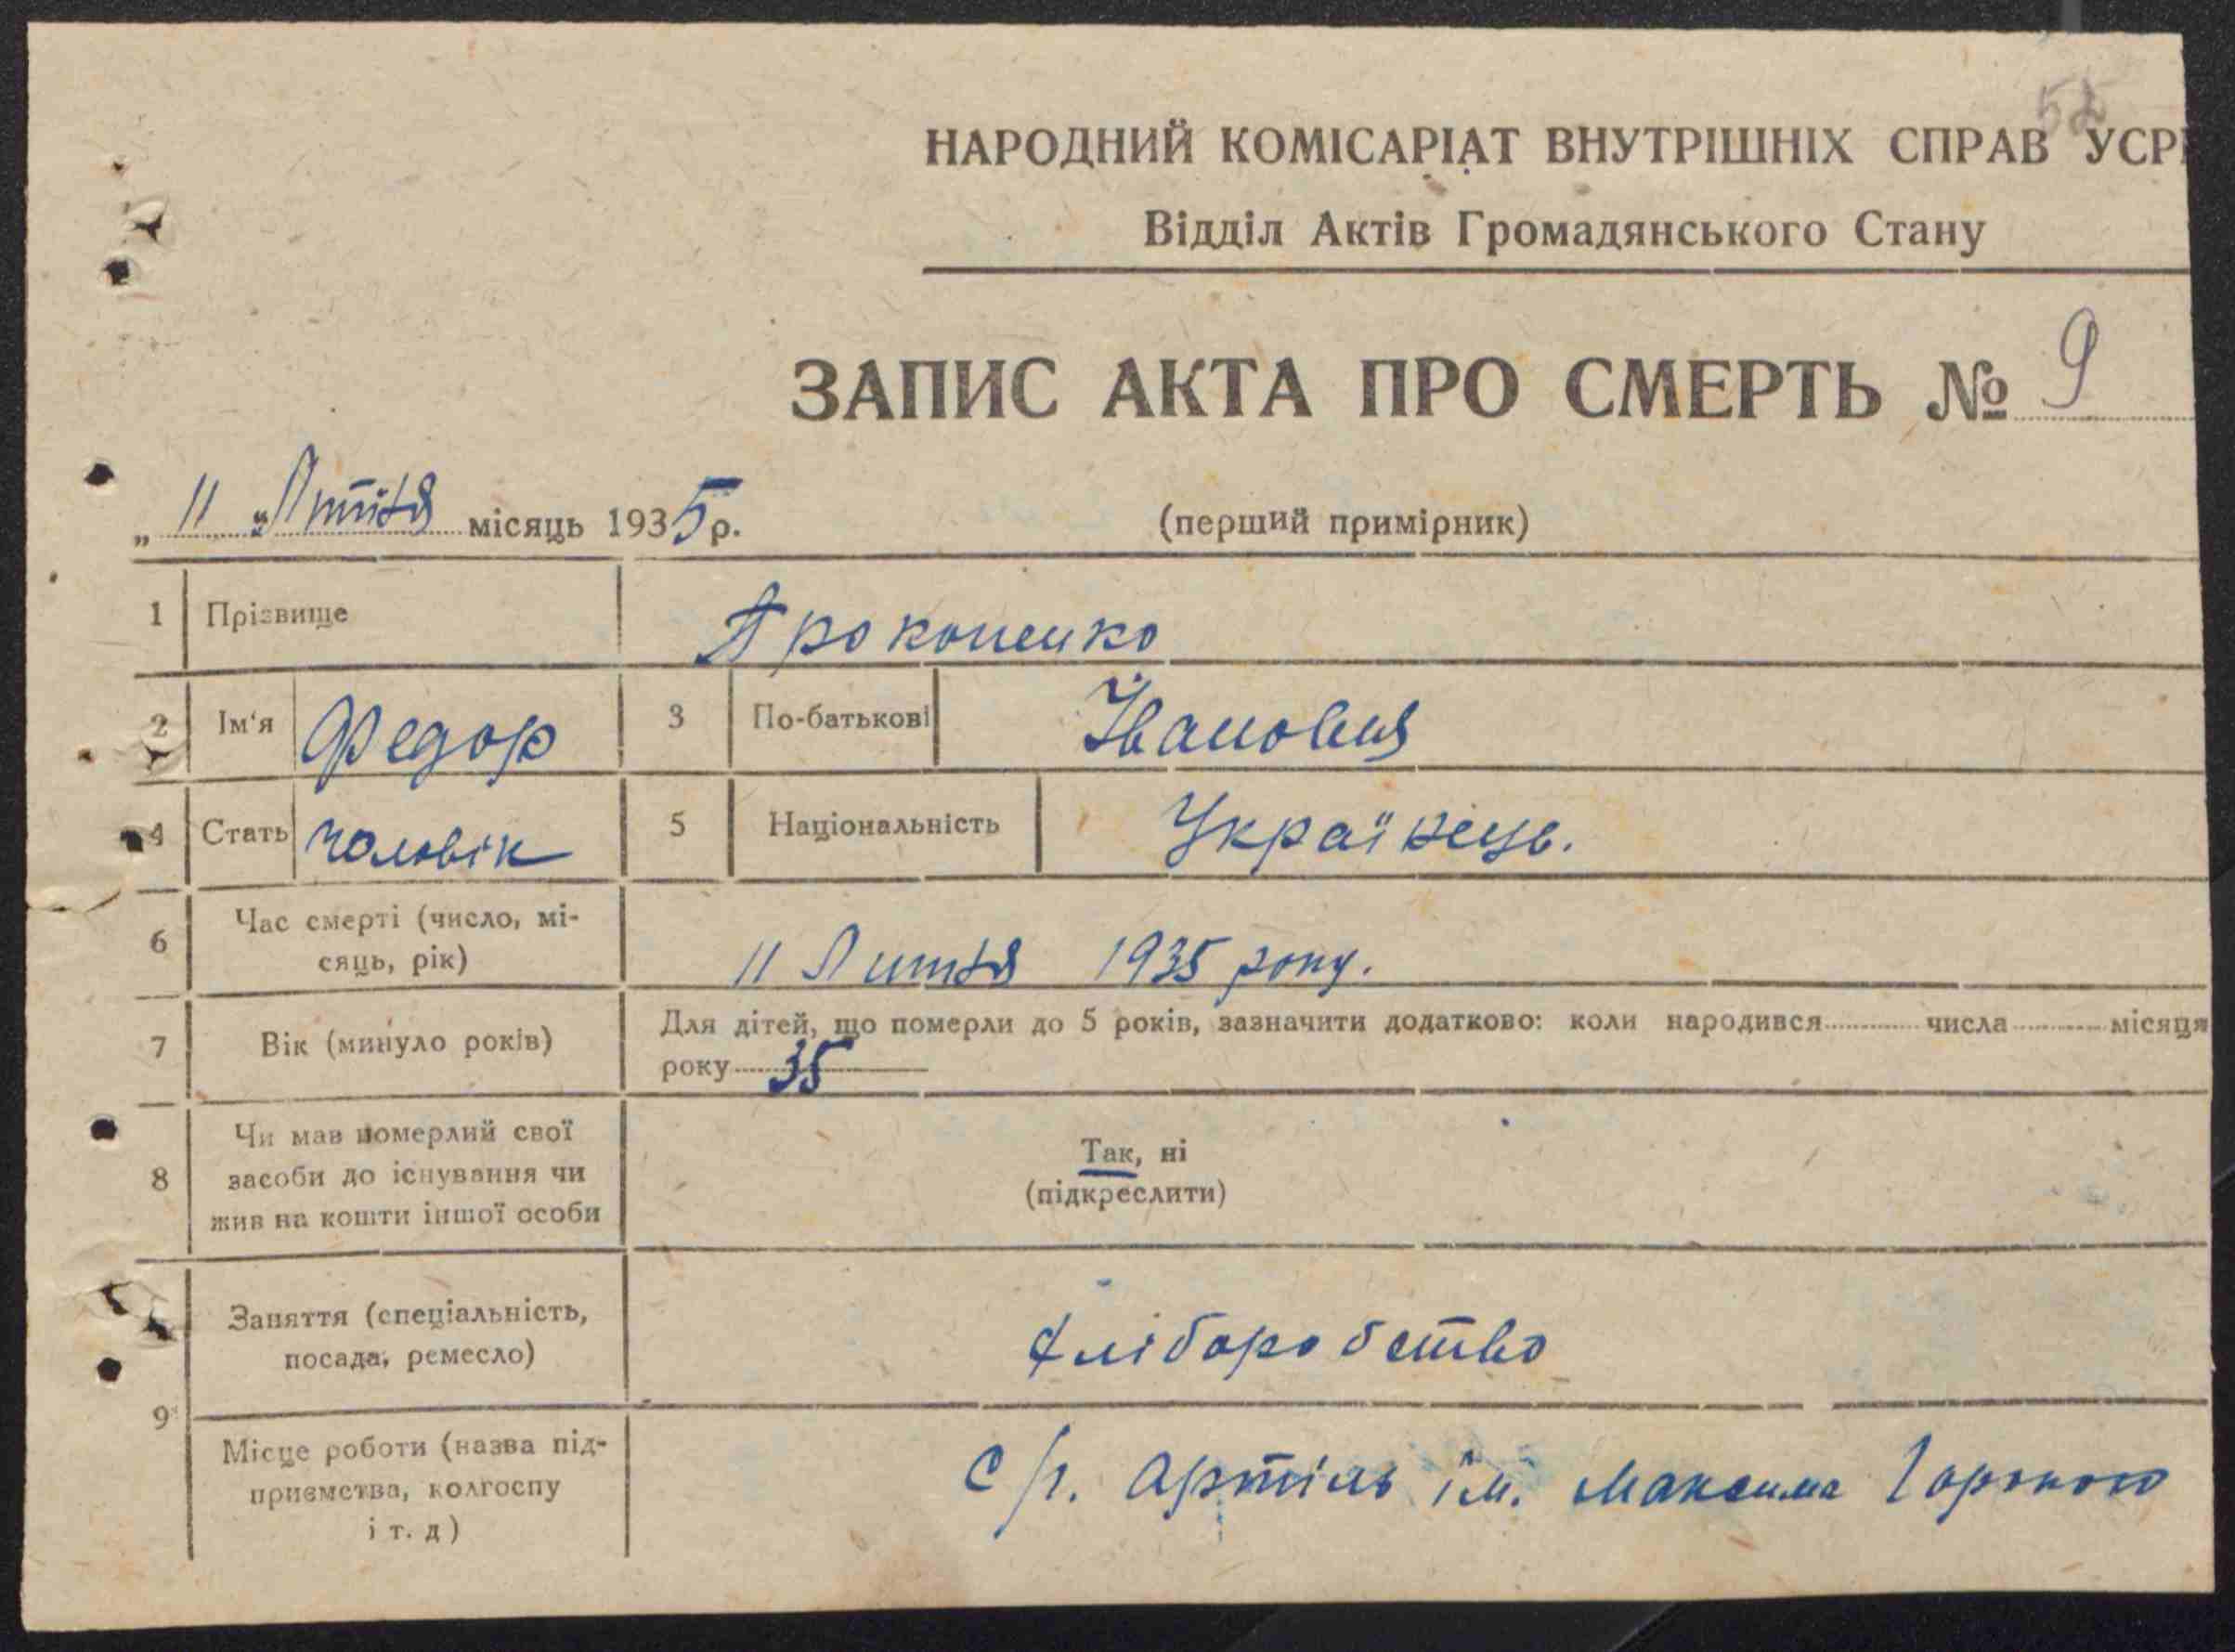 52
НАРОДНИЙ КОМІСАРІАТ ВНУТРІШНІХ СПРАВ УСР
Відділ Актів Громадянського Стану
ЗАПИС АКТА ПРО СМЕРТЬ № 9
„ 11 " Лютня місяць 1935 р. (перший примірник)
1 Прізвище Прокопенко
2 Ім'я Федор 3 По-батькові Іванович
4 Стать чоловік 5 Національність Українець.
6 Час смерті (число, мі-
сяць, рік) 11 Лютня 1935 року.
7 Вік (минуло років) Для дітей, що померли до 5 років, зазначити додатково: коли народився числа місяця
року 35
8 Чи мав померлий свої
засоби до існування чи
жив на кошти іншої особи
Так, ні
(підкреслити)
9 Заняття (спеціальність,
посада, ремесло) хліборобство
Місце роботи (назва під-
приємства, колгоспу
і т. д) с/г. артіль ім. Максима Горького